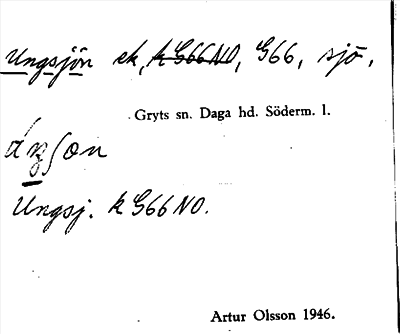 Ungsjön ek, k G66 NO, G66, sjö.
Gryts sn. Daga hd. Söderm. l.
Ungsj. k G66 NO.
Artur Olsson 1946.